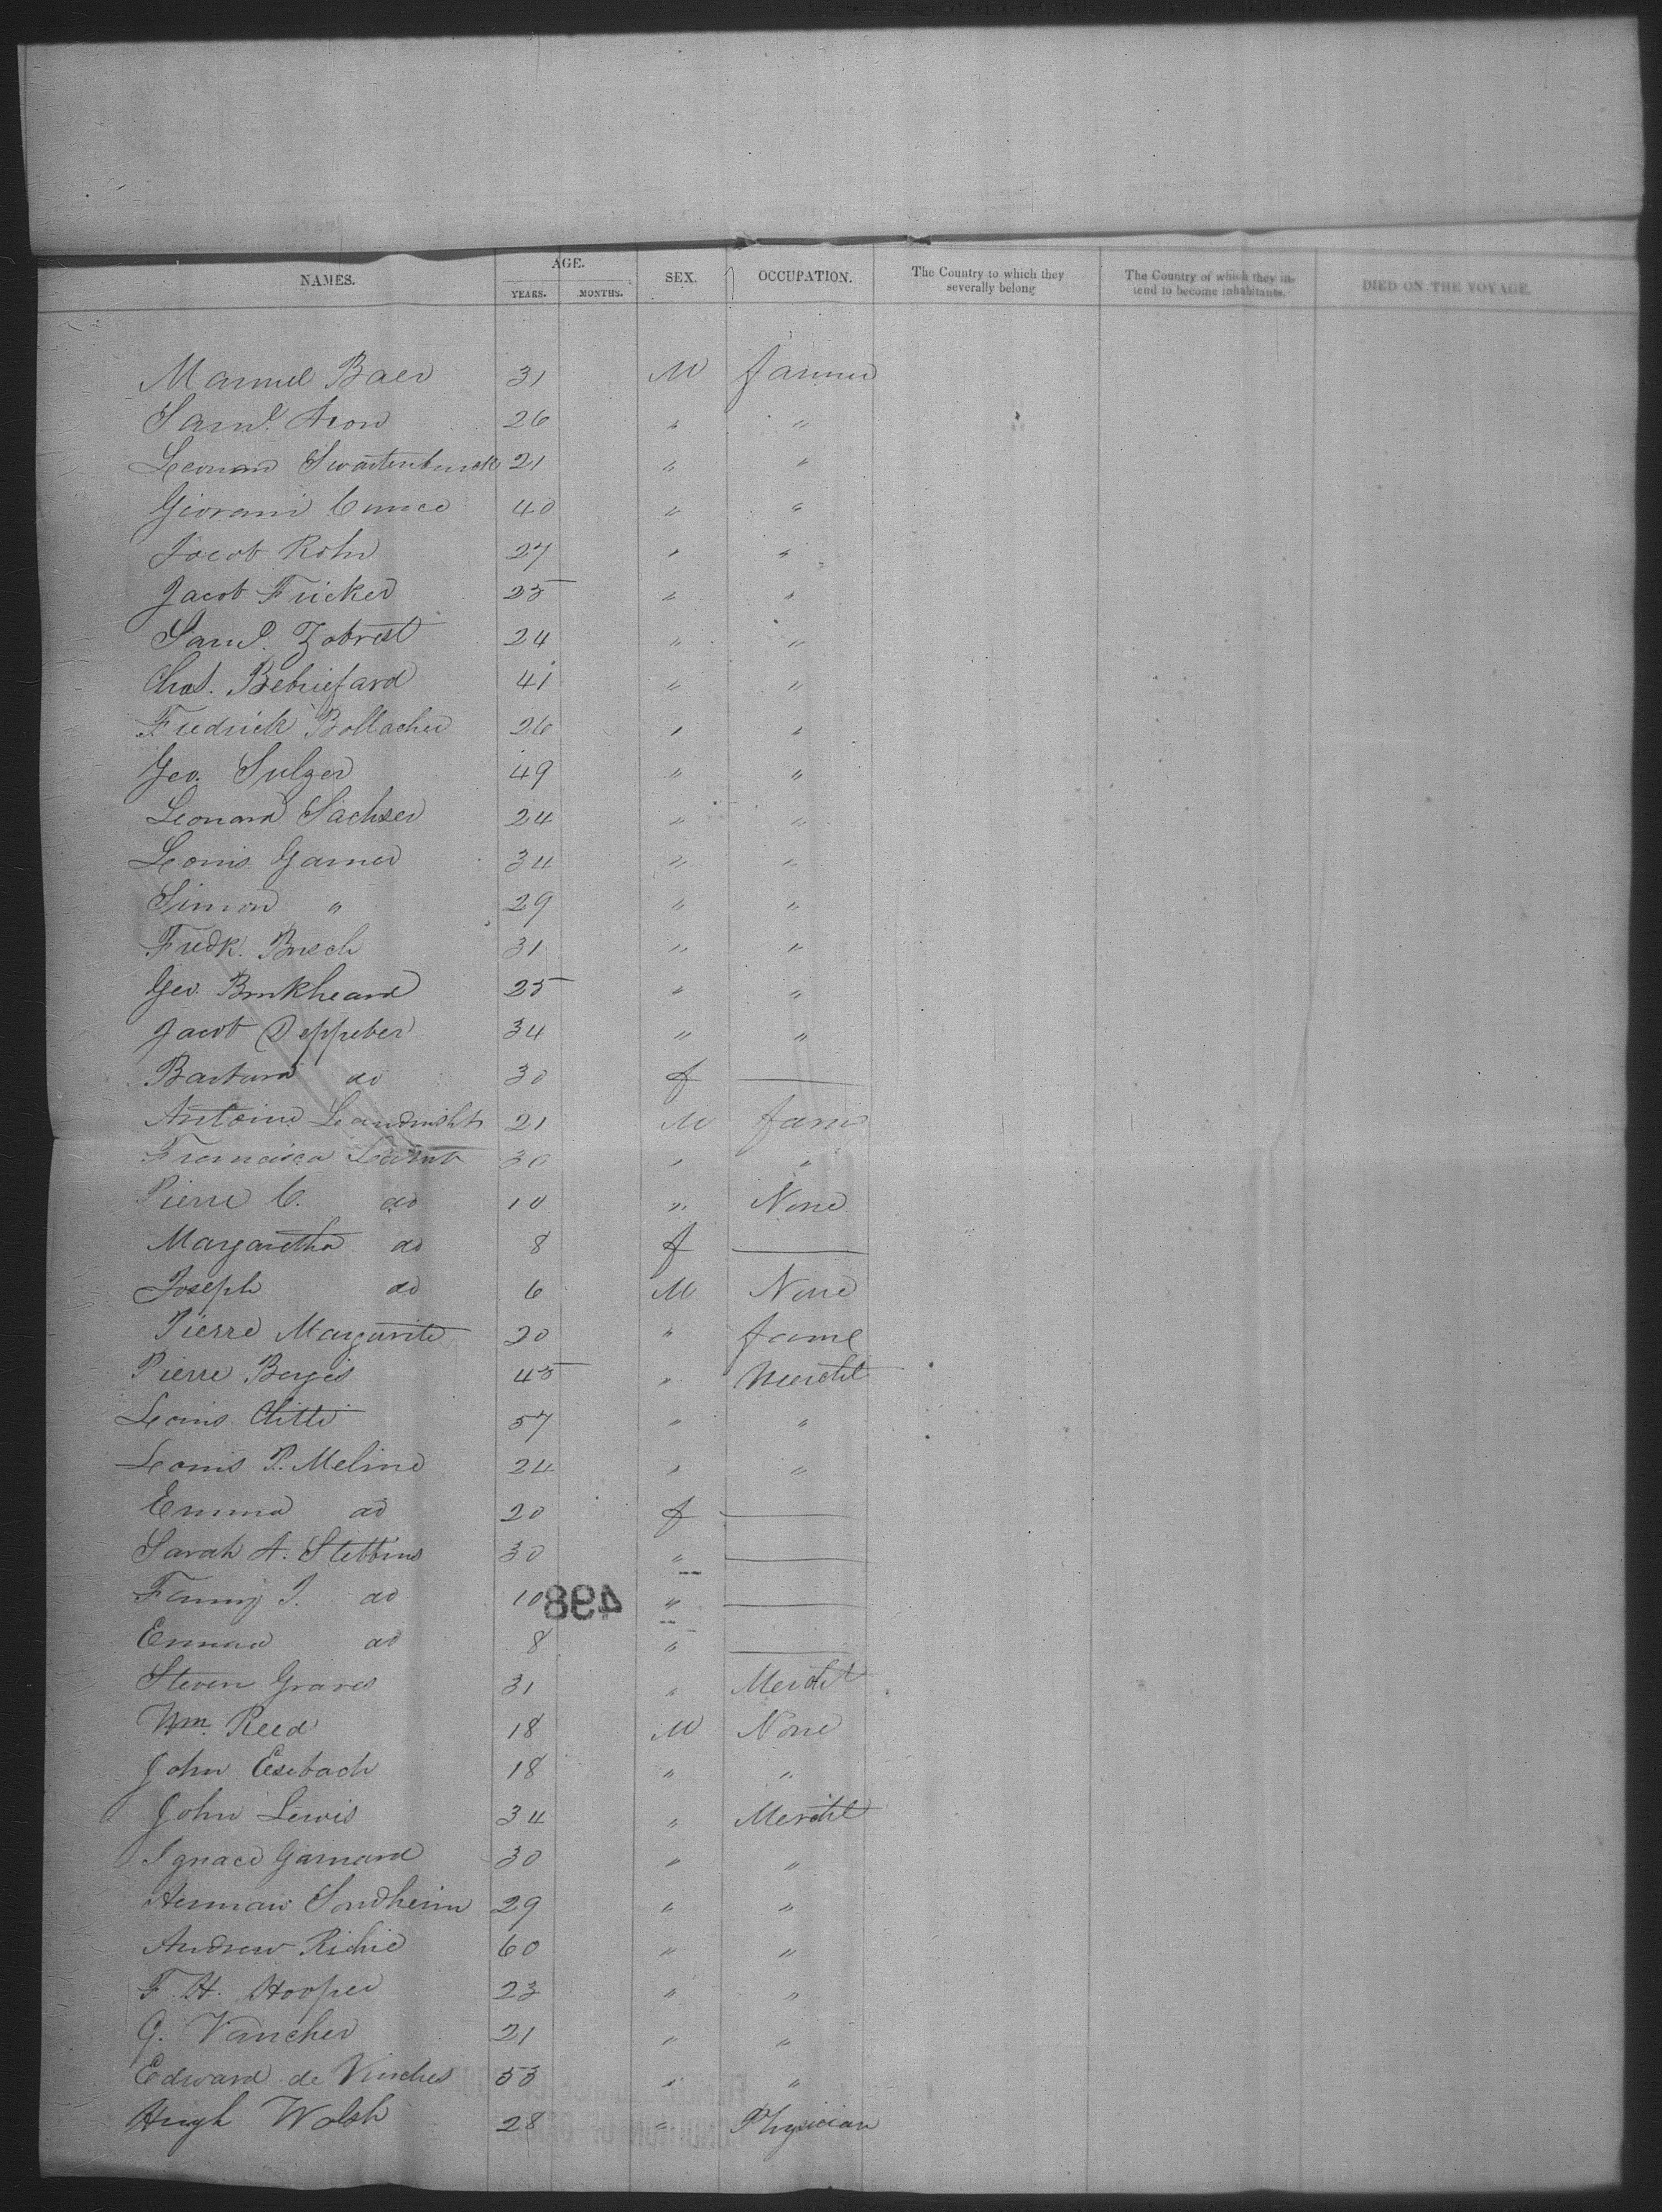 NAMES. AGE. YEARS. MONTHS. SEX. OCCUPATION. The Country to which they severally belong The Country of which they intend to become inhabitants. DIED ON THE VOYAGE.
Manuel Baer 31 M farmer
Saml. Aron 26 " "
Leonard Swartenbruck 21 " "
Giovani Cuneo 40 " "
Jacob Rohr 27 " "
Jacob Fricker 25 " "
Saml. Zobrist 24 " "
Chas. 41 " "
Fredrick Bollacher 26 " "
Geo. Sulzer 49 " "
Leonard Sachser 24 " "
Louis Garner 34 " "
Simon " 29 " "
Fredk. Busch 31 " "
Geo. Burkheard 25 " "
Jacob Deppeber 34 " "
Barbara do 30 f
Antoine 21 M farm
Francisca 30 " "
Pierre C. do 10 " None
Margaretha do 8 f
Joseph do 6 M None
Pierre Margarite 20 " farme
Pierre Bergés 45 " Mercht
Louis 57 " "
Louis P. Meline 24 " "
Emma do 20 f
Sarah A. Stebbins 30 "
Fanny J. do 10 "
498
Emma do 8 "
Steven Graves 31 " Mercht
Wm. Reed 18 M None
John Esebach 18 " "
John Lewis 34 " Mercht
Ignace Garnard 30 " "
Herman Sondheim 29 " "
Andrew Richie 60 " "
F. H. Hooper 23 " "
G. Vaucher 21 " "
Edward de Vinches 53 " "
Hugh Walsh 28 " Physician